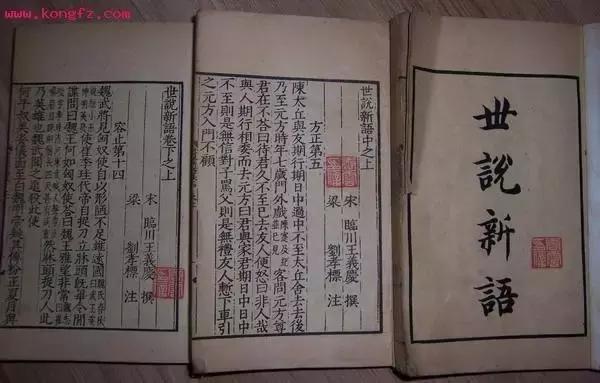 www.kongfz.com
世說新語
世說新語中之上
方正第五
宋 臨川王義慶 撰
梁 劉孝標 注
陳太丘與友期行期日中過中不至太丘舍去去後
乃至元方時年七歲門外戲陳寔及紀並已見客問元方尊
君在不荅曰待君久不至已去友人便怒曰非人哉
與人期行相委而去元方曰君與家君期日中日中
不至則是無信對子罵父則是無禮友人慙下車引
之元方入門不顧
世說新語卷下之上
容止第十四
宋 臨川王義慶 撰
梁 劉孝標 注
魏武將見匈奴使自以形陋不足雄遠國魏氏春秋曰武王姿
貌短小而神明英發使崔季珪代帝自捉刀立牀頭旣畢令間
諜問曰魏王何如匈奴使荅曰魏王雅望非常
然牀頭捉刀人此
乃英雄也魏武聞之追殺此使
何平叔美姿儀面至白魏明帝疑其傅粉正夏月與